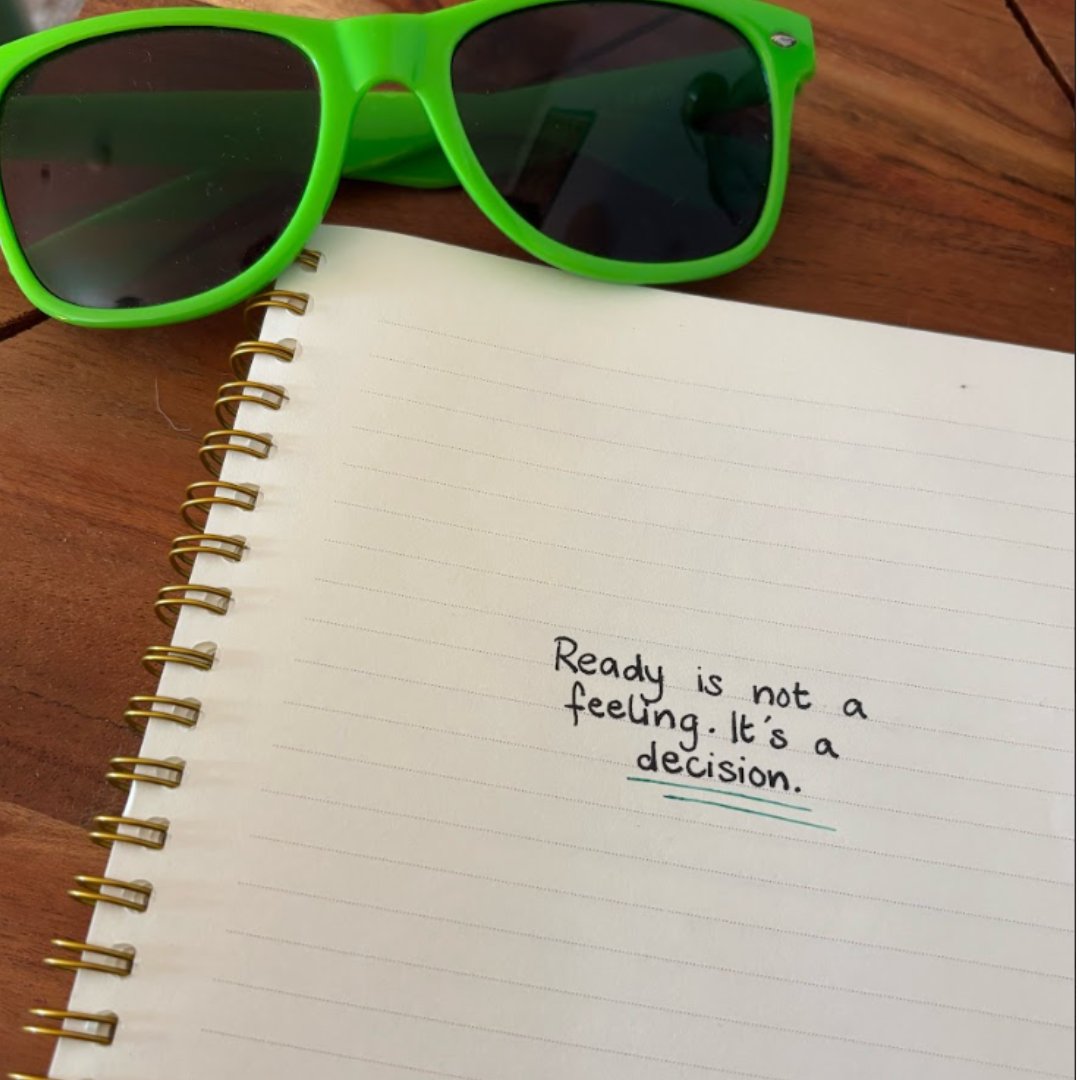 Ready is not a
feeling. It's a
decision.